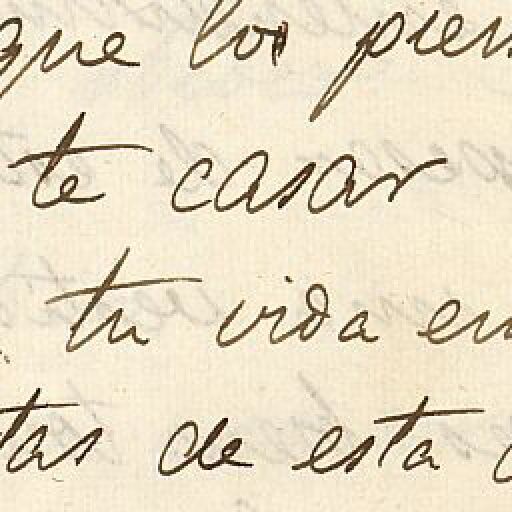 que los pien
te casar
tu vida en
tas de esta